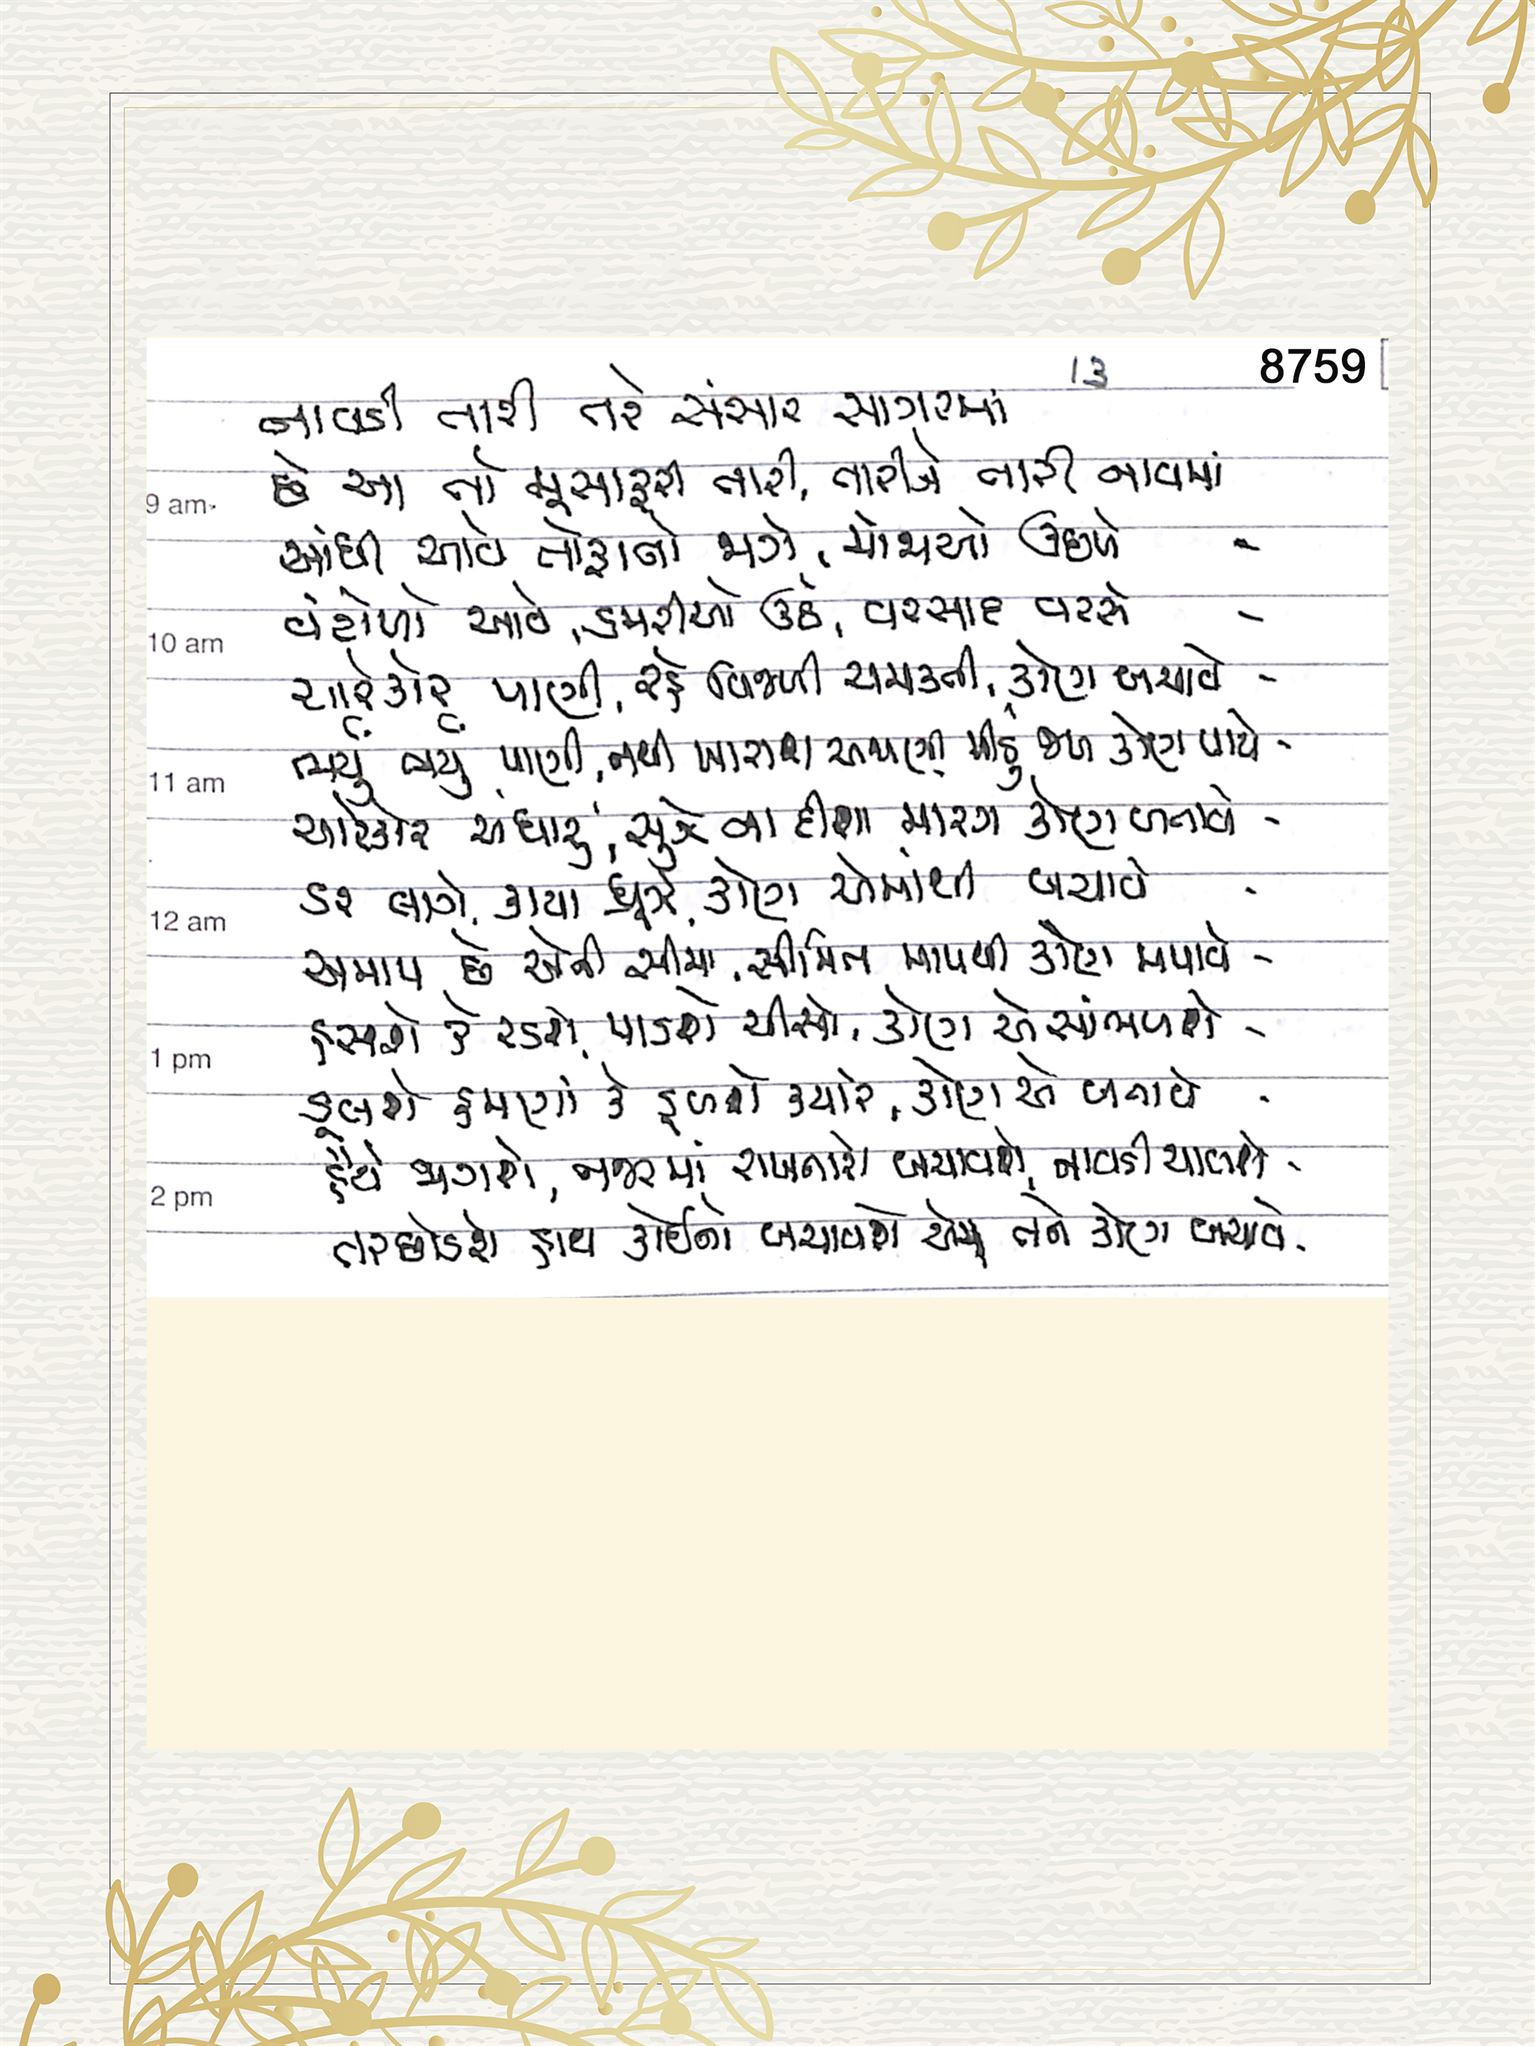 13 8759
નાવડી તારી તરે સંસાર સાગરમાં
છે આ તો મુસાફરી તારી, તારીજે તારી નાવમાં
9 am
આંધી આવે તોફાનો જાગે, મોજાઓ ઉછળે -
વંટોળો આવે, ડમરીઓ ઉઠે, વરસાદ વરસે -
10 am
ચારેકોર પાણી, રહે વિજળી ચમકતી, કોણ બચાવે -
ભર્યું ભર્યું પાણી, નથી ખારાશ અજાણી મીઠું જળ કોણ પાયે -
11 am
ચારેકોર અંધારું, સુઝે ના દીશા મારગ કોણ બતાવે -
ડર લાગે, કાયા ધ્રૂજે, કોણ એમાંથી બચાવે -
12 am
અમાપ છે એની સીમા, સીમિત માપથી કોણ મપાવે -
હસશે કે રડશે, પાડશે ચીસો, કોણ એ સાંભળશે -
1 pm
ડૂબશે હમણાં કે ડૂબશે ક્યારે, કોણ એ બતાવે -
હૈયે જાગશે, નજરમાં રાખનારો બચાવશે, નાવડી ચાલશે -
2 pm
તરછોડશે હાથ કોઈનો બચાવશે તને કોણ બચાવે.